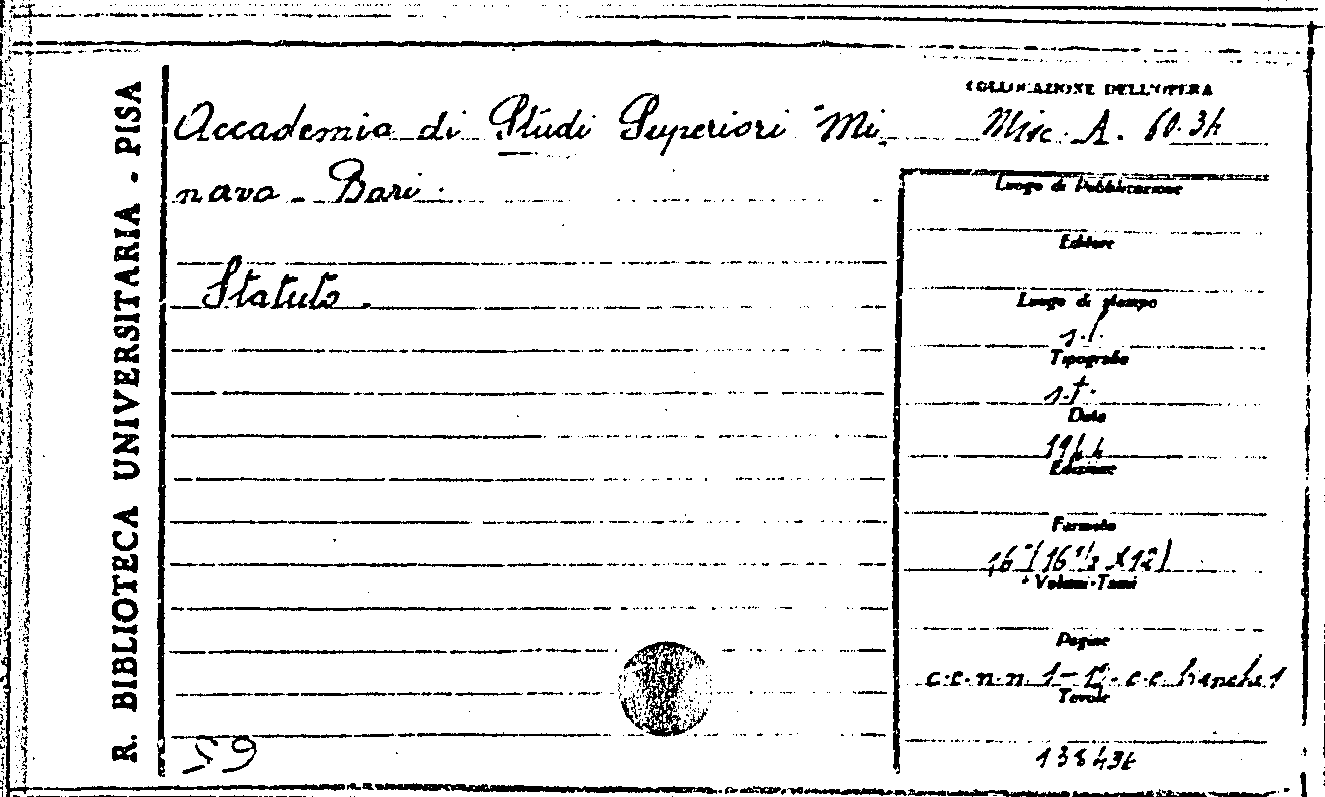 R. BIBLIOTECA UNIVERSITARIA - PISA
Accademia di Studi Superiori "Mi
nava - Bari.
Statuto.
COLLOCAZIONE DELL'OPERA
Misc. A. 60.34
Luogo di Pubblicazione
Editore
Luogo di stampo
s.l.
Tipografo
s.t.
Data
Edizione
Formato
16° (16 1/2 X 12)
Volumi-Tomi
Pagine
c.c.n.n 1- c.c. bianche 1
Tavole
59